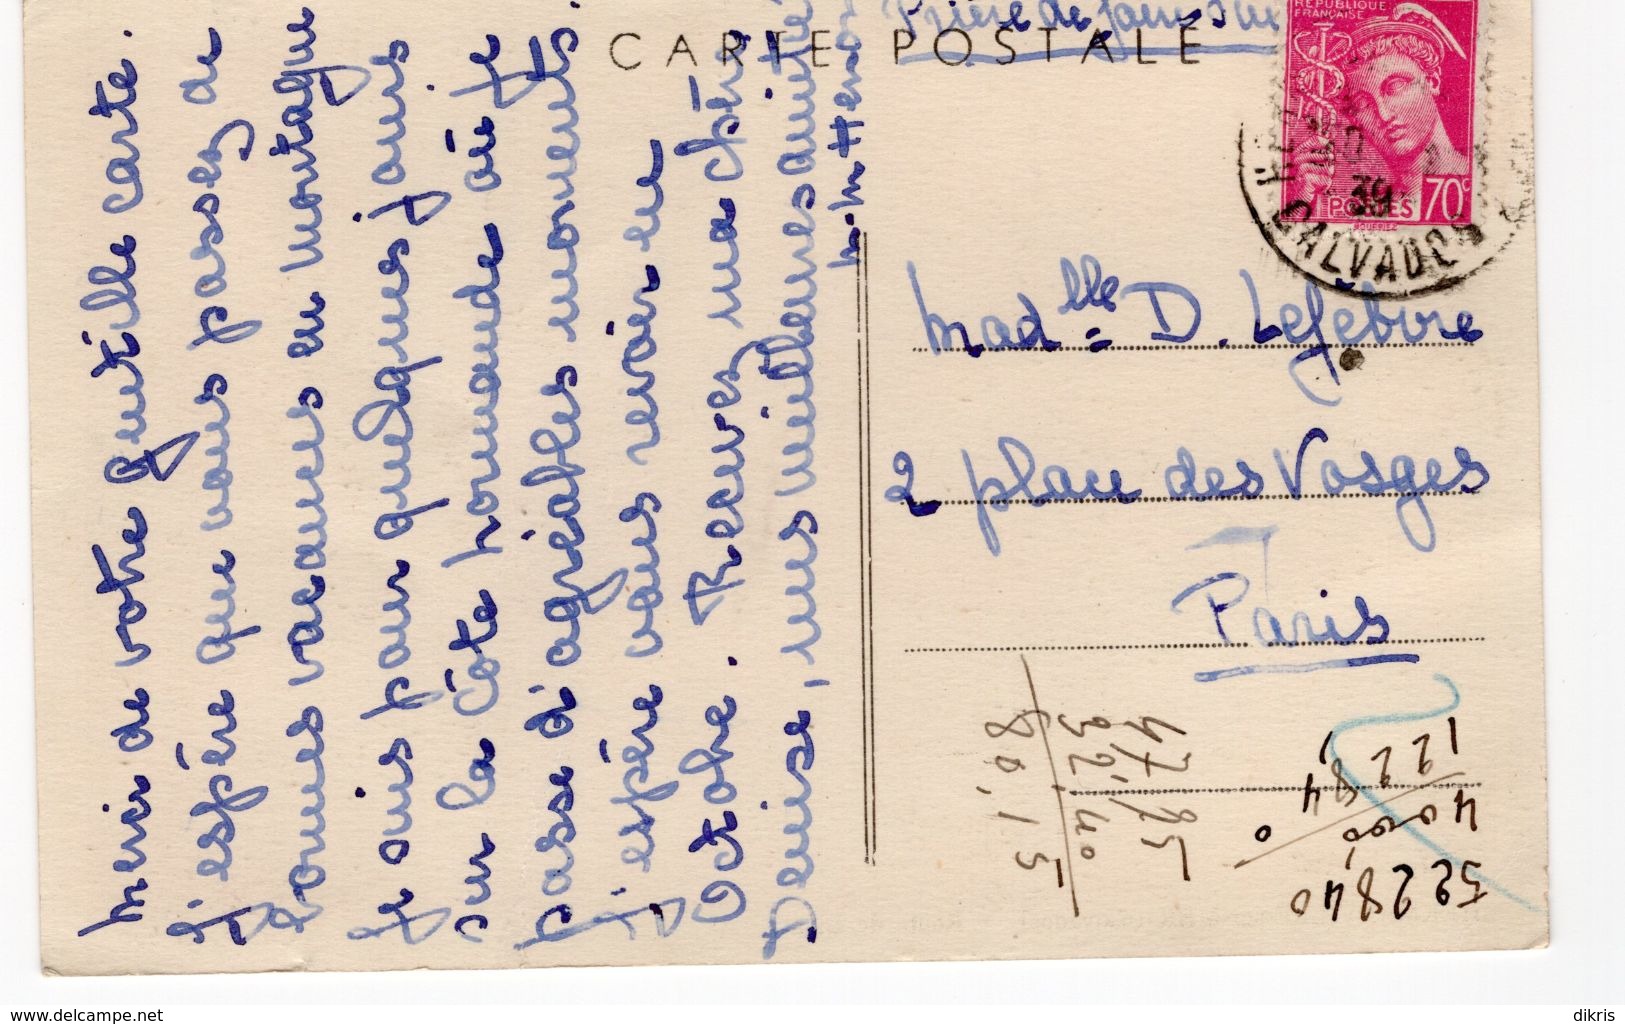 Merci de votre gentille carte.
J'espère que vous passez de
bonnes vacances en montagne
Je suis pour quelques jours
sur la côte normande où je
passe d'agréables moments.
J'espère vous revoir en
Octobre. Recevez ma chère
Denise, mes meilleures amitiés
CARTE POSTALE
Prière de faire
RÉPUBLIQUE
FRANÇAISE
POSTES 70c
39
CALVADOS
Madlle D. Lefebvre
2 place des Vosges
Paris
47,95
32,40
80,15
522840
4000
122
84
delcampe.net
dikris